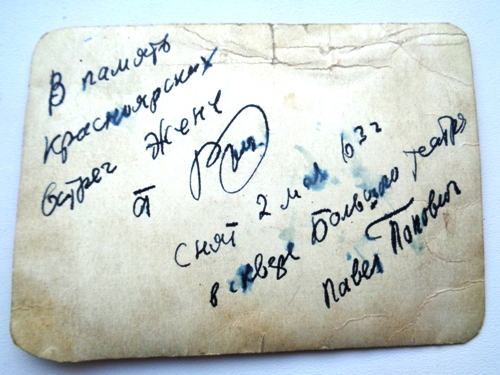 В память
Красноярских
встреч Жене
от
снят 2 мая 63г
в сквере Большого театра
Павел Попович